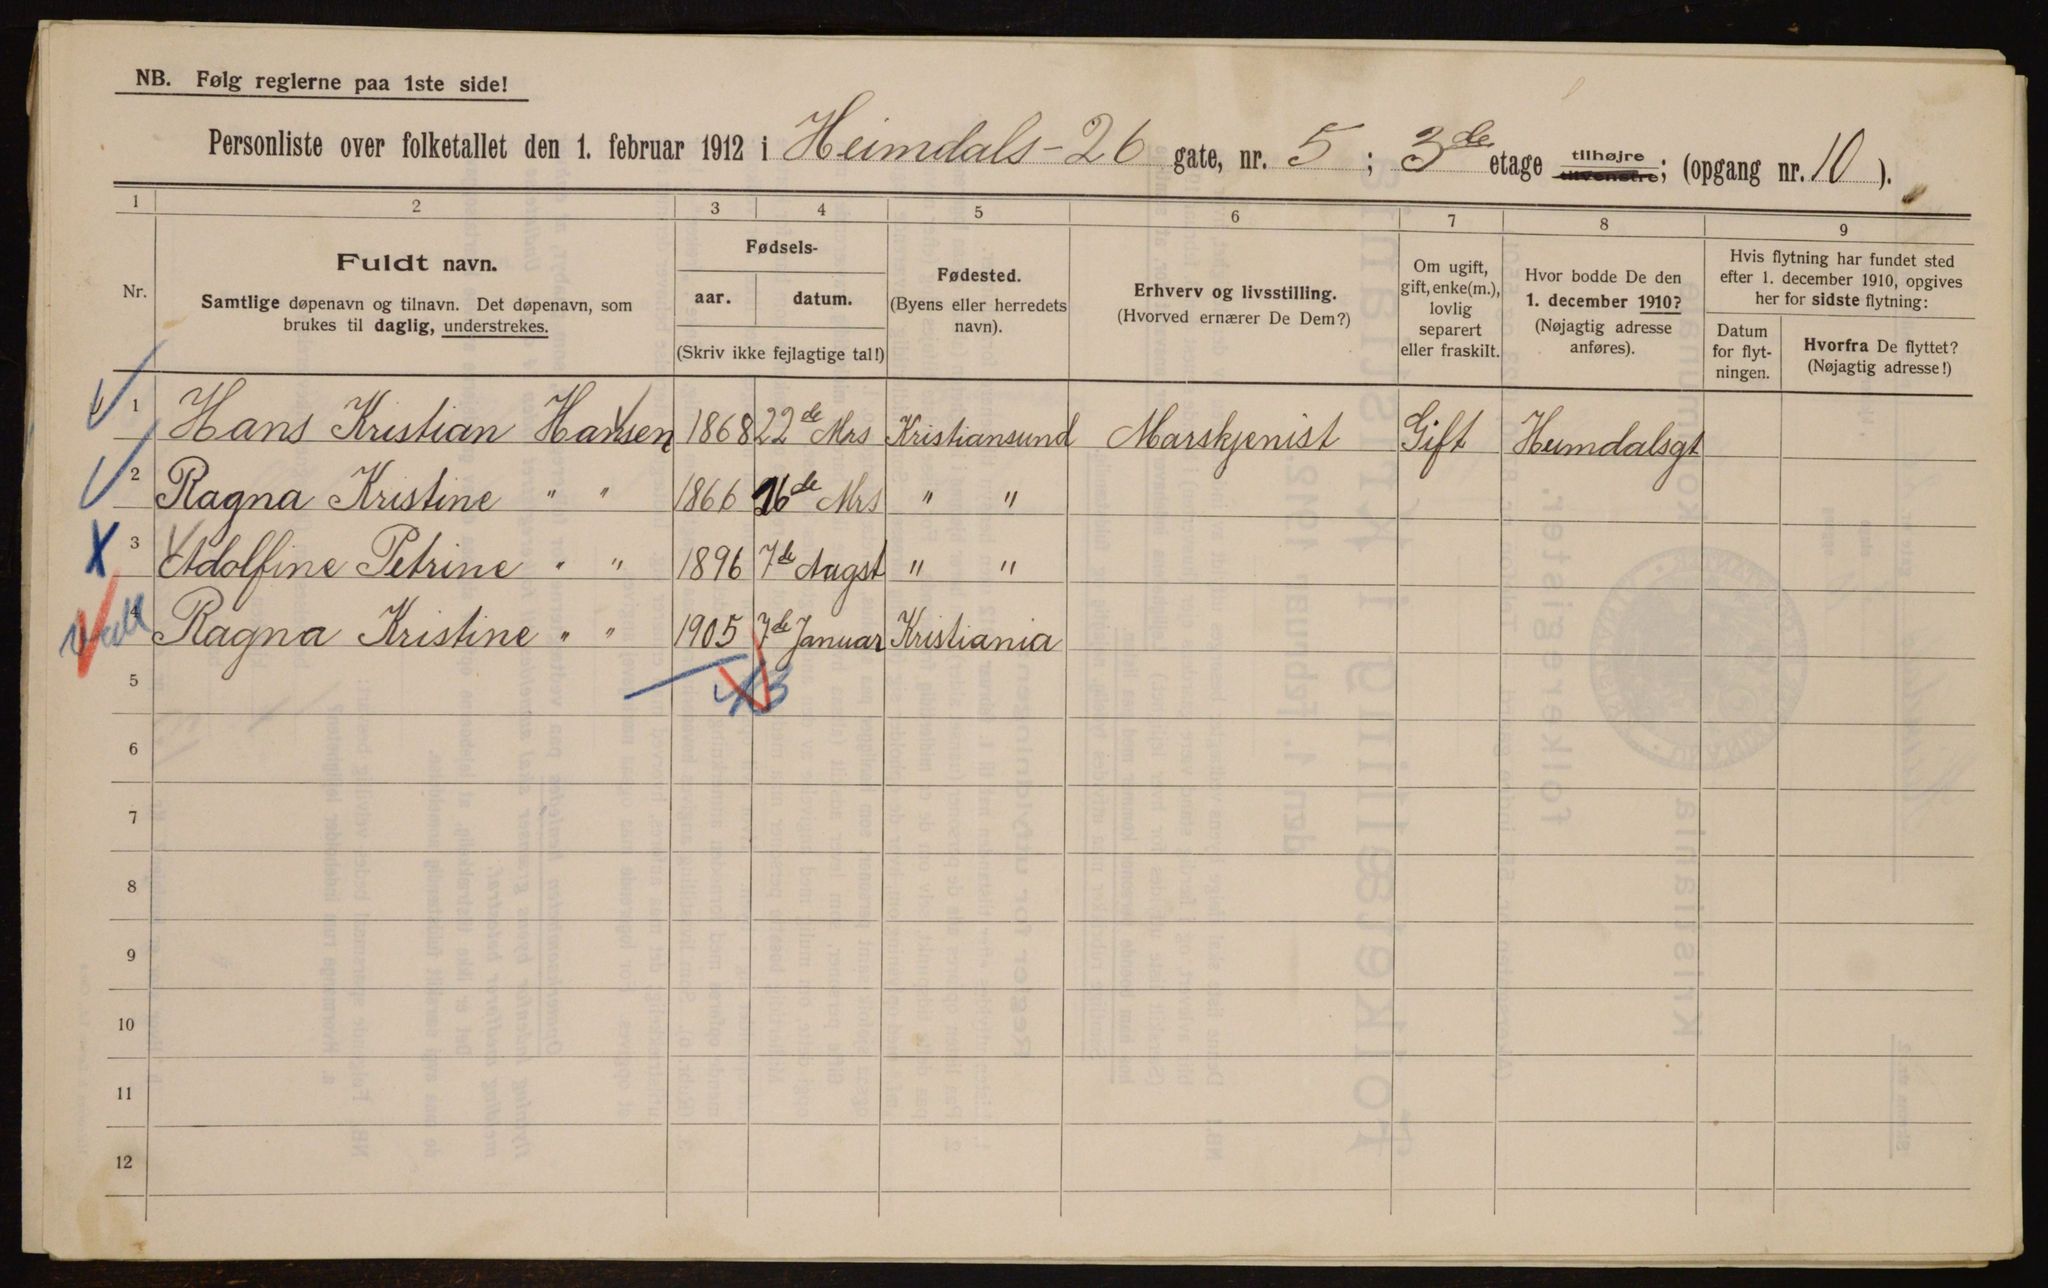 NB. Følg reglerne paa 1ste side!
Personliste over folketallet den 1. februar 1912 i Heimdals-26 gate, nr. 5; 3de etage tilhøjre tilvenstre; (opgang nr. 10).
1 2 3 4 5 6 7 8 9
Nr.
Fuldt navn.
Samtlige døpenavn og tilnavn. Det døpenavn, som
brukes til daglig, understrekes.
Fødsels-
aar. datum.
(Skriv ikke fejlagtige tal!)
Fødested.
(Byens eller herredets
navn).
Erhverv og livsstilling.
(Hvorved ernærer De Dem?)
Om ugift,
gift, enke(m.),
lovlig
separert
eller fraskilt.
Hvor bodde De den
1. december 1910?
(Nøjagtig adresse
anføres).
Hvis flytning har fundet sted
efter 1. december 1910, opgives
her for sidste flytning:
Datum
for flyt-
ningen.
Hvorfra De flyttet?
(Nøjagtig adresse!)
1 Hans Kristian Hansen 1868 22de Mrs Kristiansund Marskjenist Gift Heimdalsgt
2 Ragna Kristine " " 1866 26de Mrs " "
3 Adolfine Petrine " " 1896 7de Augst " "
4 Ragna Kristine " " 1905 7de Januar Kristiania
5
6
7
8
9
10
11
12